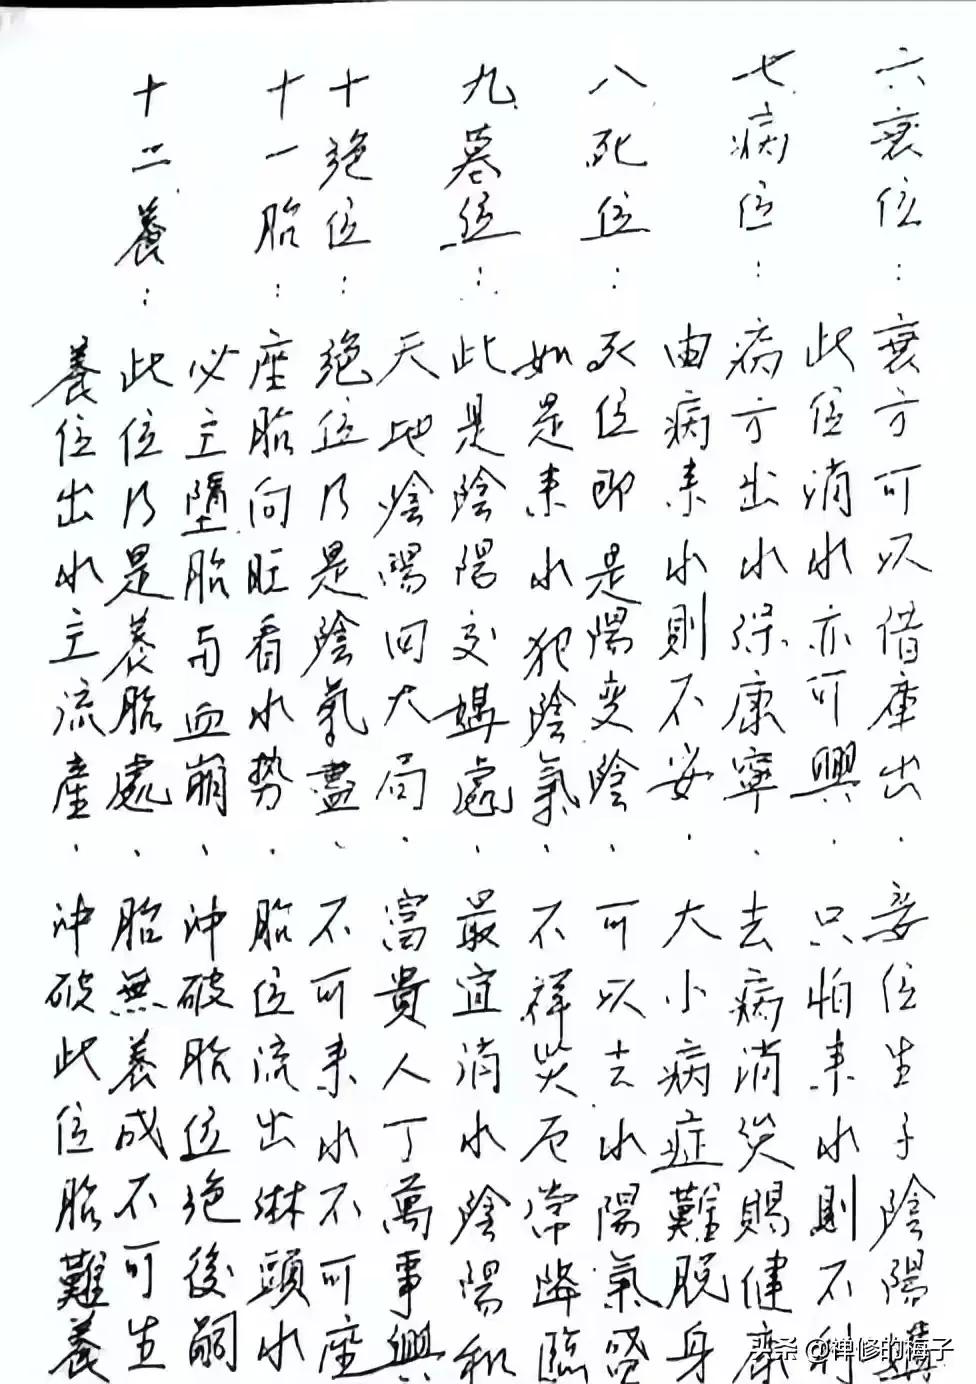 六衰位：衰方可以借库出．妾位生子陰陽媾
此位消水亦可興．只怕来水則不利
七病位：病方出水保康寧．去病消災賜健康
由病来水則不安．大小病症難脱身
八死位：死位即是陽变陰．可以去水陽氣盛
如是来水犯陰氣．不祥災厄常降臨
九墓位：此是陰陽交媾處．最宜消水陰陽和
天地陰陽回大局．富貴人丁萬事興
十絕位：绝位乃是陰氣盡．不可来水不可座
十一胎：座胎向旺看水势．胎位流出淋頭水
必主墮胎与血崩．冲破胎位绝後嗣
十二養：此位乃是養胎處．胎無養成不可生
養位出水主流産．冲破此位胎難養
头条 @禅修的梅子